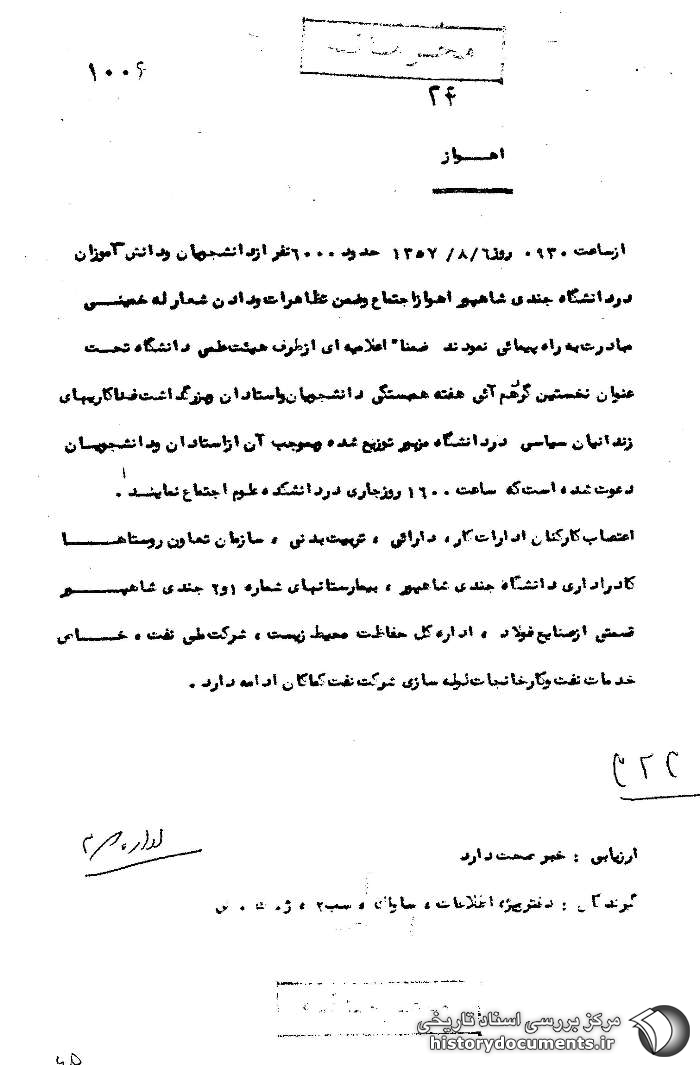 محرمانه
۱۰۰۶
۲۴
اهـــواز
ازساعت ۰۹۳۰ روز ۱۳۵۷/۸/۶ حدود ۶۰۰۰نفر ازدانشجویان ودانش آموزان
دردانشگاه جندی شاهپور اهوازاجتماع وضمن تظاهرات ودادن شعار له خمینـــی
مبادرت به راه پیمائی نمودند ضمنا" اعلامیه ای ازطرف هیئت علمی دانشگاه تحـــت
عنوان نخستین گرهم آئی هفته همبستگی دانشجویان واستادان وبزرگداشت فداکاریهای
زندانیان سیاسی دردانشگاه مزبور توزیع شده وبموجب آن ازاستادان ودانشجویـــان
دعوت شده است که ساعت ۱۶۰۰ روزجاری دردانشکده علوم اجتماع نماینـــد .
اعتصاب کارکنان ادارات کار، دارائی ، تربیت بدنی ، سازمان تعاون روستاهـــا
کادراداری دانشگاه جندی شاهپور ، بیمارستانهای شماره ۱و۲ جندی شاهپـــور
قسمتی ازصنایع فولاد ، اداره کل حفاظت محیط زیست ، شرکت ملی نفت ،
خدمات نفت وکارخانجات لوله سازی شرکت نفت کماکان ادامه دارد .
۳۲۳
اداره سوم
ارزیابی : خبر صحت دارد
گیرندگان : دفترویژه اطلاعات ، ساواک ،
مرکز بررسی اسناد تاریخی
historydocuments.ir